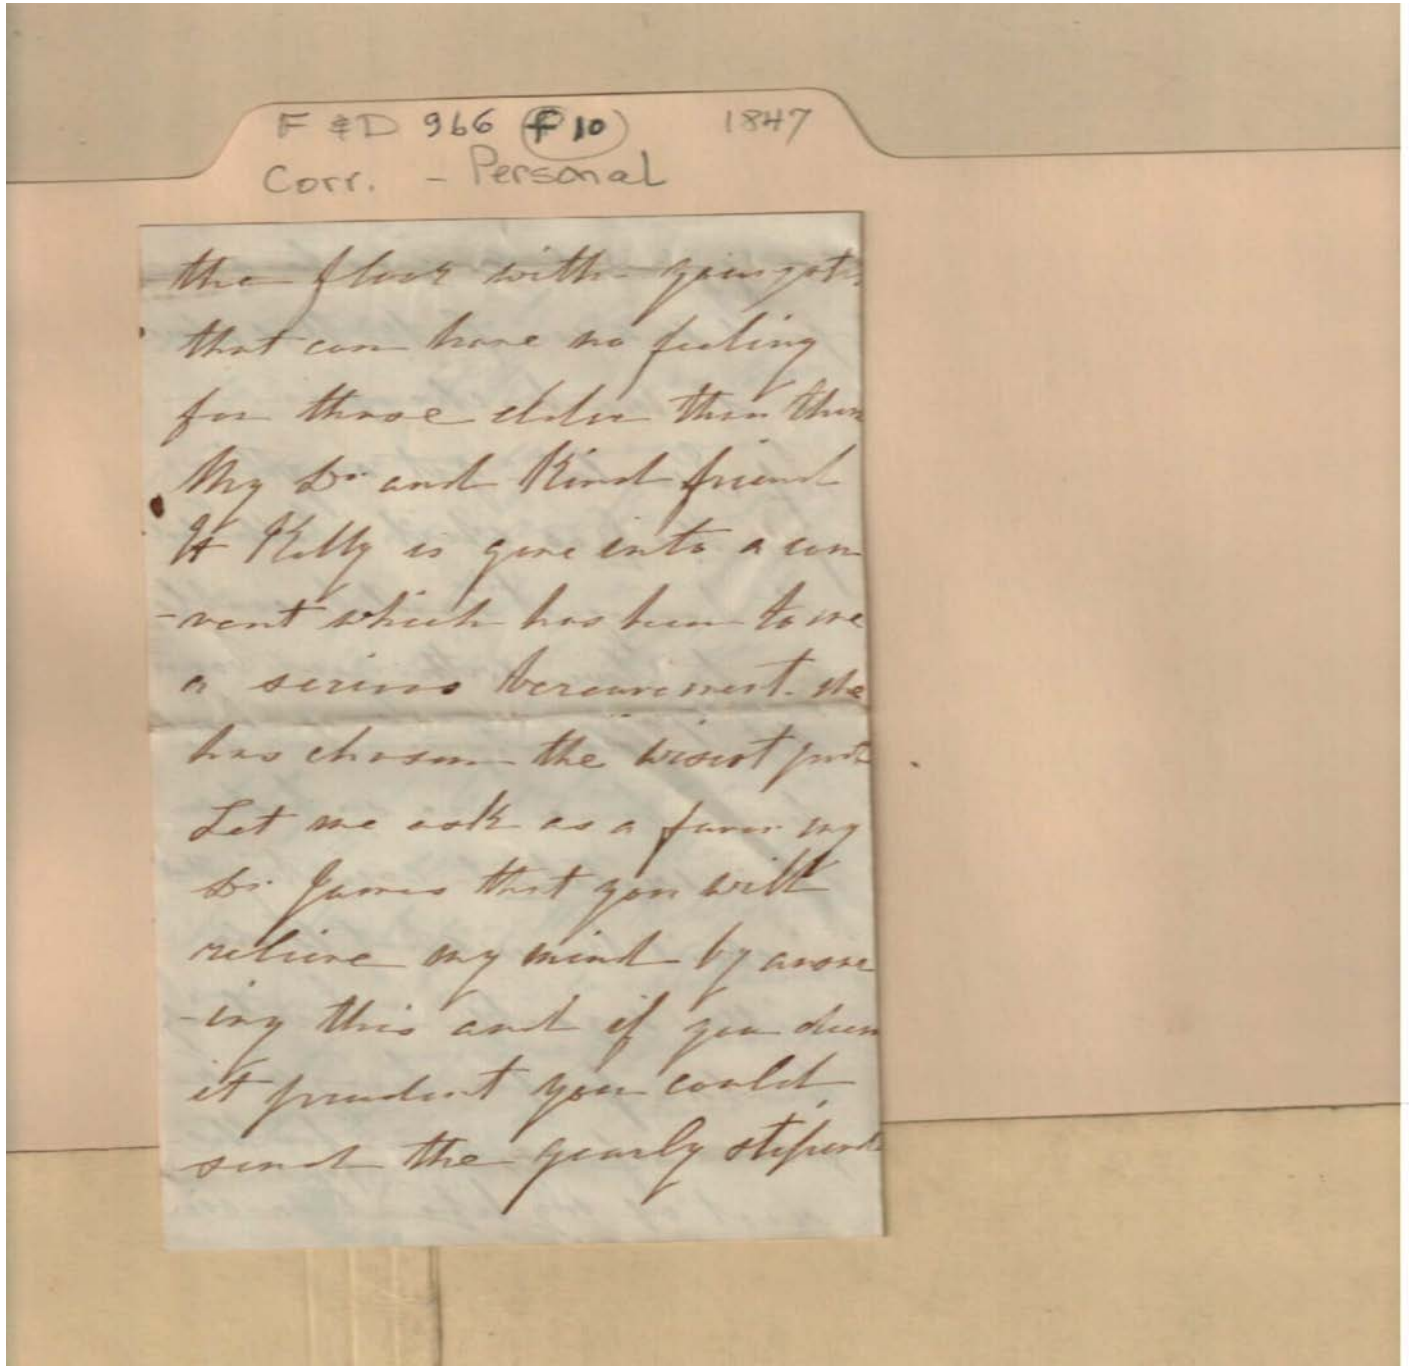 F & D 966 f 10 1847
Corr. - Personal
the floor with
that can have no feeling
for those older than them
My Dr and Kind friend
H Kelly is gone into a con
-vent which has been to me
a serious bereavement. She
has chosen the wisest part
Let me ask as a favor my
Dr. James that you will
relieve my mind by answe
-ing this and if you deem
it prudent you could
send the yearly stipend